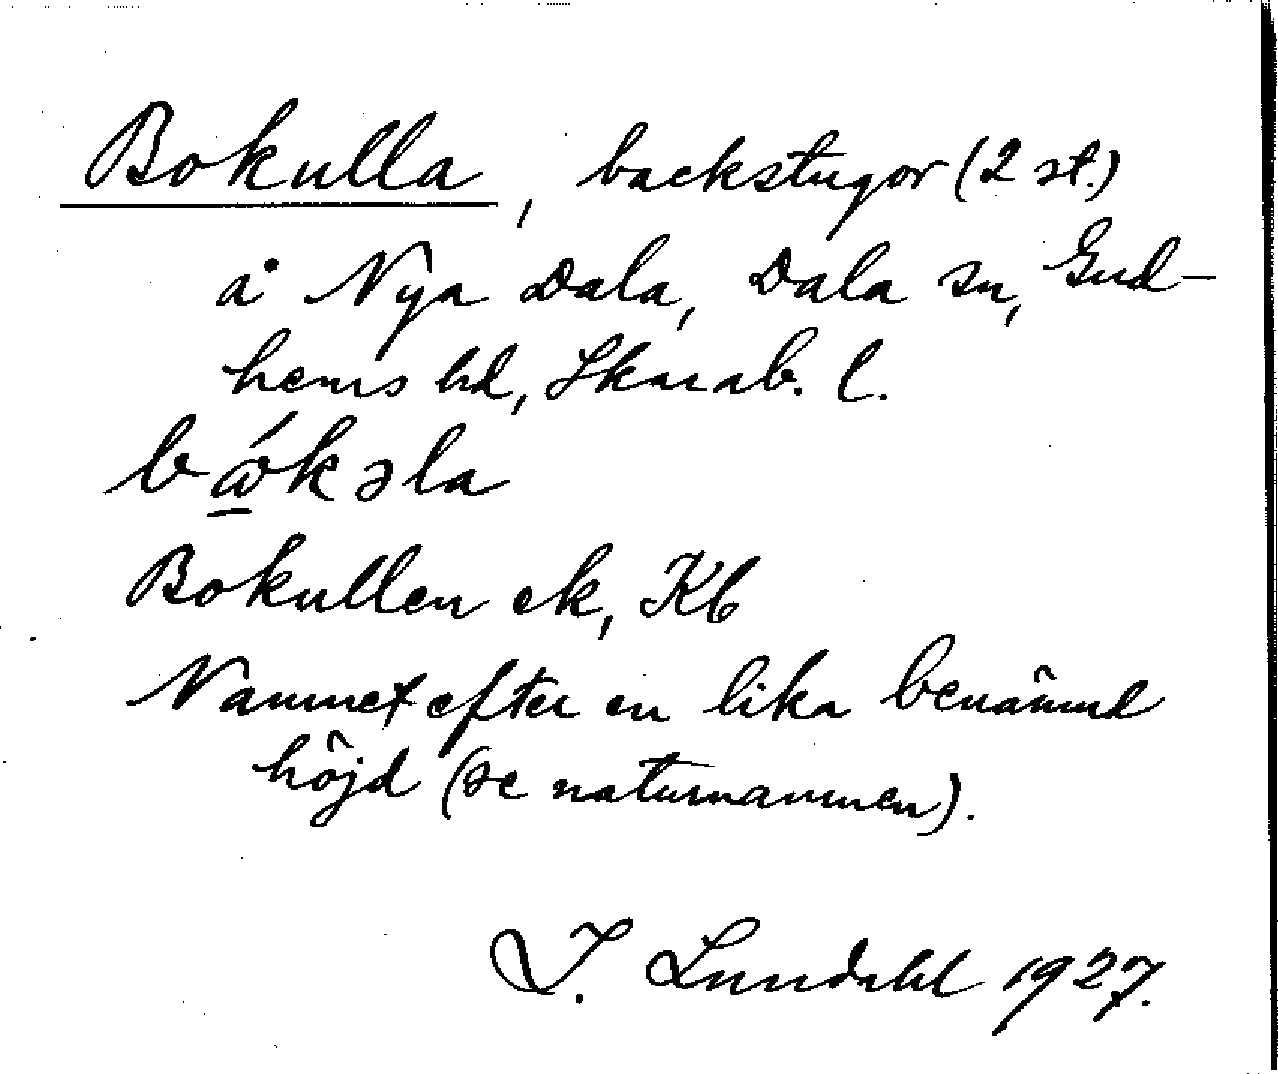 Bokulla, backstugor (2 st.)
å Nya Dala, Dala sn, Gud-
hems hd, Skarab. l.
bǿkəla
Bokullen ek, Kb
Namnet efter en lika benämnd
höjd (se naturnamnen).
I. Lundahl 1927.